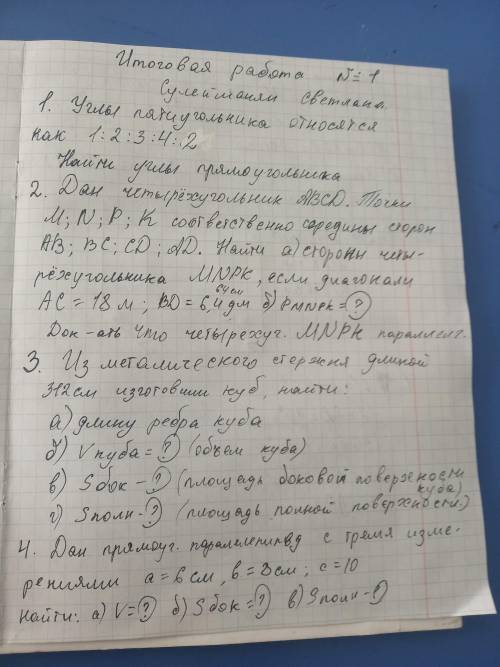 Итоговая работа №1
Сулейманян Светлана
1. Углы пятиугольника относятся
как 1:2:3:4:2
Найти углы прямоугольника
2. Дан четырёхугольник ABCD. Точки
M; N; P; K соответственно середины сторон
AB; BC; CD; AD. Найти а) стороны четы-
рёхугольника MNPK, если диагонали
64см
AC = 18 м; BD = 6,4 дм б) PMNPK = ?
Док-ать что четырехуг. MNPK параллелг.
3. Из металического стержня длиной
312 см изготовили куб, найти:
а) длину ребра куба
б) V куба = ? (объем куба)
в) S бок - ? (площадь боковой поверхности
куба)
г) S полн - ? (площадь полной поверхности)
4. Дан прямоуг. параллелепипед с тремя изме-
рениями a = 6 см, b = 3 см; c = 10
найти: а) V = ? б) S бок = ? в) S полн - ?